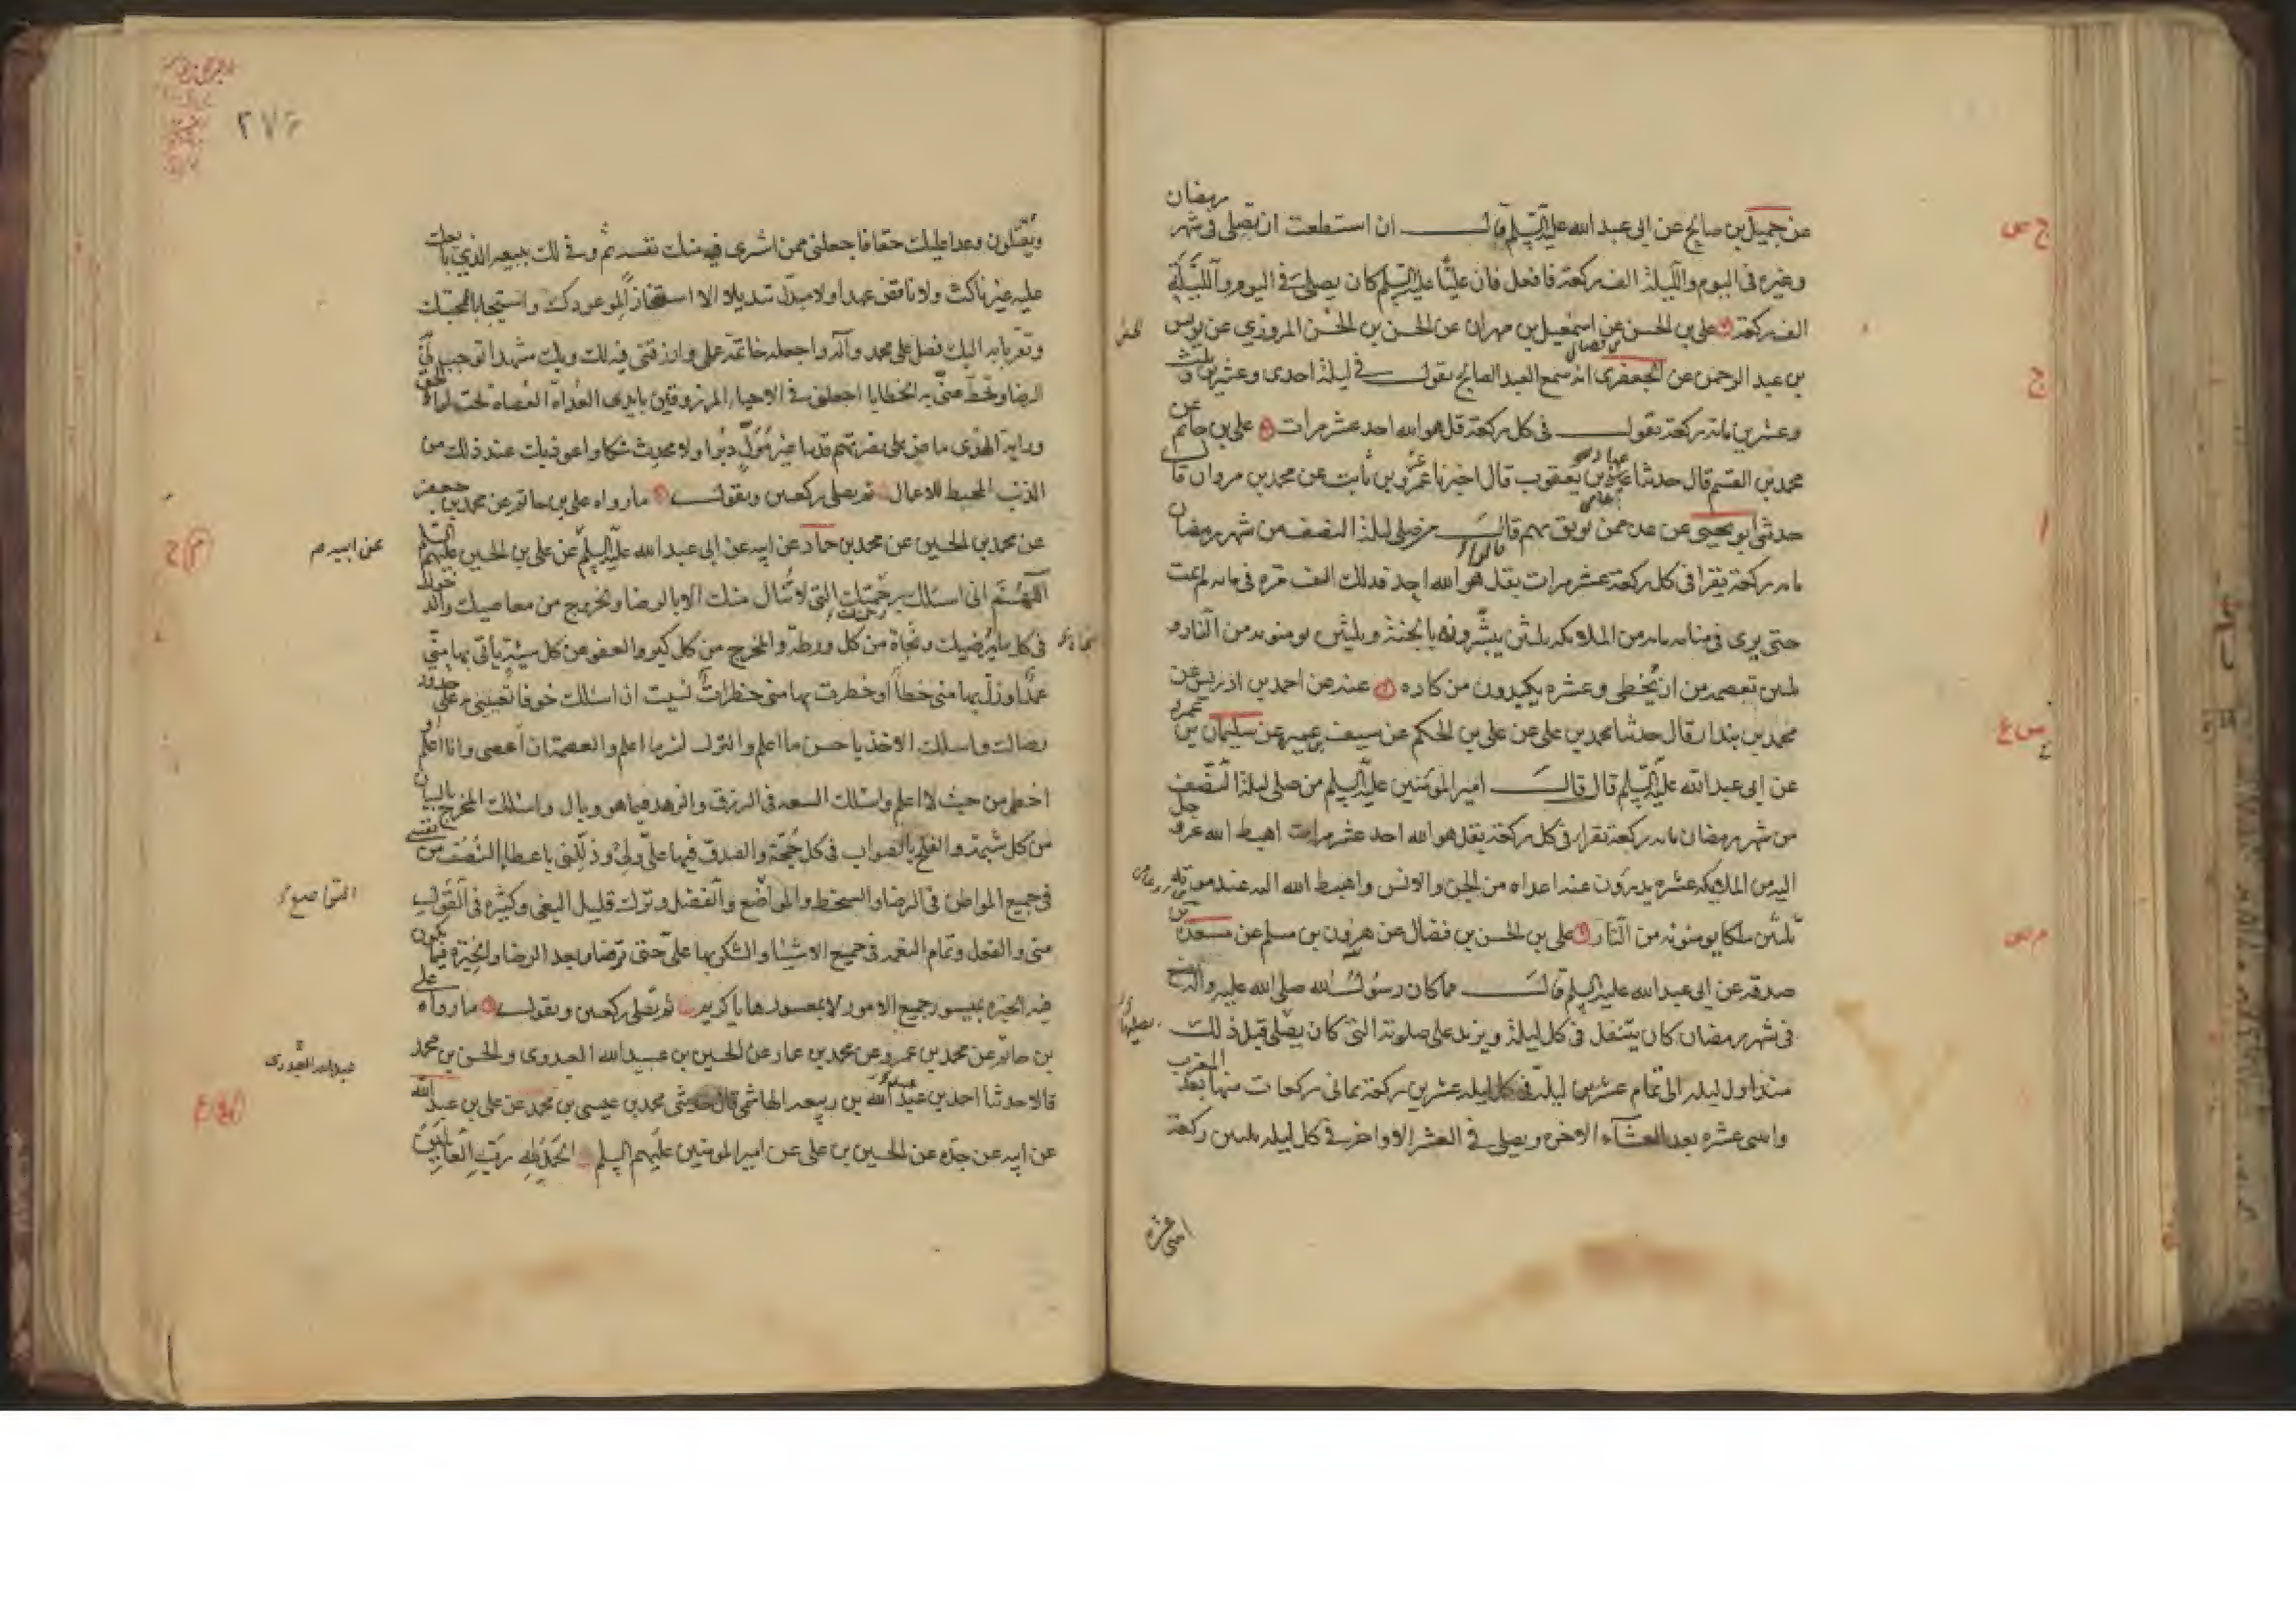 عن جميل بن صالح عن ابى عبد الله عليه السلم قال ان استطعت ان تصلى فى شهر رمضان
وغيره فى اليوم والليلة الف ركعة فافعل فان عليا عليه السلم كان يصلى فى اليوم والليلة
الف ركعة على بن الحسن عن اسمعيل بن مهران عن الحسن بن الحسن المروزى عن يونس
بن عبد الرحمن عن الجعفرى انه سمع العبد الصالح يقول فى ليلة احدى وعشرين وثلث
وعشرين مائه ركعة يقول فى كل ركعة قل هو الله احد عشر مرات على بن حاتم عن
محمد بن القسم قال حدثنا عباد بن يعقوب قال اخبرنا عمرو بن ثابت عن محمد بن مروان قال
حدثنى ابو يحيى عن عده ممن يوثق بهم قال من صلى ليلة النصف من شهر رمضان
مايه ركعة يقرا فى كل ركعة عشر مرات بقل هو الله احد فذلك الف مره فى مايه لم يمت
حتى يرى فى منامه مايه من الملائكه ثلثين يبشرونه بالجنة وثلثين يومنونه من النار و
ثلثين تعصمه من ان يخطى وعشره يكيدون من كاده عنه عن احمد بن ادريس عن
محمد بن بندار قال حدثنا محمد بن على عن على بن الحكم عن سيف بن عميره عن سليمان بن عمرو
عن ابى عبد الله عليه السلم قال قال امير المومنين عليه السلم من صلى ليلة النصف
من شهر رمضان مايه ركعة يقرا فى كل ركعة بقل هو الله احد عشر مرات اهبط الله عز وجل
اليه من الملايكه عشره يدرؤن عنه اعداه من الجن والانس واهبط الله اليه عند موته
ثلثين ملكا يومنونه من النار على بن الحسن بن فضال عن هرون بن مسلم عن مسعدة بن
صدقه عن ابى عبد الله عليه السلم قال مما كان رسول الله صلى الله عليه واله يصنع
فى شهر رمضان كان يتنفل فى كل ليلة ويزيد على صلوته التى كان يصلى قبل ذلك
منذ اول ليله الى تمام عشرين ليلة فى كل ليله عشرين ركعة ثمانى ركعات منها بعد المغرب
واثنى عشره بعد العشاء الاخره ويصلى فى العشر الاواخر فى كل ليله ثلثين ركعة
اثنى عشره
٢٧٤
ويقتلون وعدا عليك حقا فاجعلنى ممن اشترى فيه منك نفسه ثم وفى لك ببيعه الذى بايعك
عليه غير ناكث ولا ناقض عهدا ولا مبدل تبديلا الا استنجازا لموعودك واستيجابا لمحبتك
وتقربا به اليك فصل على محمد وآله واجعله خاتمة عملى وارزقنى فيه لك وبك مشهدا توجب لى به
الرضا وتحط عنى به الخطايا اجعلنى فى الاحياء المرزوقين بايدى العداة العصاة تحت لواء الحق
وراية الهدى ماض على نصرتهم قدما غير مول دبرا ولا محدث شكا واعوذ بك عند ذلك من
الذنب المحبط للاعمال ثم يصلى ركعتين ويقول ما رواه على بن حاتم عن محمد بن جعفر
عن محمد بن الحسين عن محمد بن حماد عن ابيه عن ابى عبد الله عليه السلم عن على بن الحسين عليهم السلم
عن ابيه م
اللهم انى اسئلك برحمتك التى لا تنال منك الا بالرضا والخروج من معاصيك والدخول
فى كل ما يرضيك ونجاة من كل ورطة والمخرج من كل كبر والعفو عن كل سيئة ياتى بها منى
عمدا وزل بها منى خطأ او خطرت بها منى خطرات نسيت ان اسئلك خوفا تعيننى به على حدود
رضاك واسئلك الاخذ باحسن ما اعلم والترك لشر ما اعلم والعصمة ان اعصى وانا اعلم او
اخطى من حيث لا اعلم واسئلك السعه فى الرزق والزهد فيما هو وبال واسئلك المخرج بالبيان
من كل شبهة والفلج بالصواب فى كل حجة والصدق فيما على ولى وذللنى باعطاء النصف من نفسى
فى جميع المواطن فى الرضا والسخط والتواضع والفضل وترك قليل البغى وكثيره فى القول
منى والفعل وتمام النعمه فى جميع الاشياء والشكر بها على حتى ترضا وبعد الرضا والخيرة فيما يكون
فيه الخيرة بميسور جميع الامور لا بمعسورها يا كريم ثم تصلى ركعتين ويقول ما رواه على
بن حاتم عن محمد بن عمرو عن محمد بن عمار عن الحسين بن عبيد الله العدوى والحسن بن محمد
قالا حدثنا احمد بن عبد الله بن ربيعه الهاشمى قال حدثنى محمد بن عيسى بن محمد عن على بن عبد الله
عن ابيه عن جده عن الحسين بن على عن امير المومنين عليهم السلم الحمد لله رب العالمين